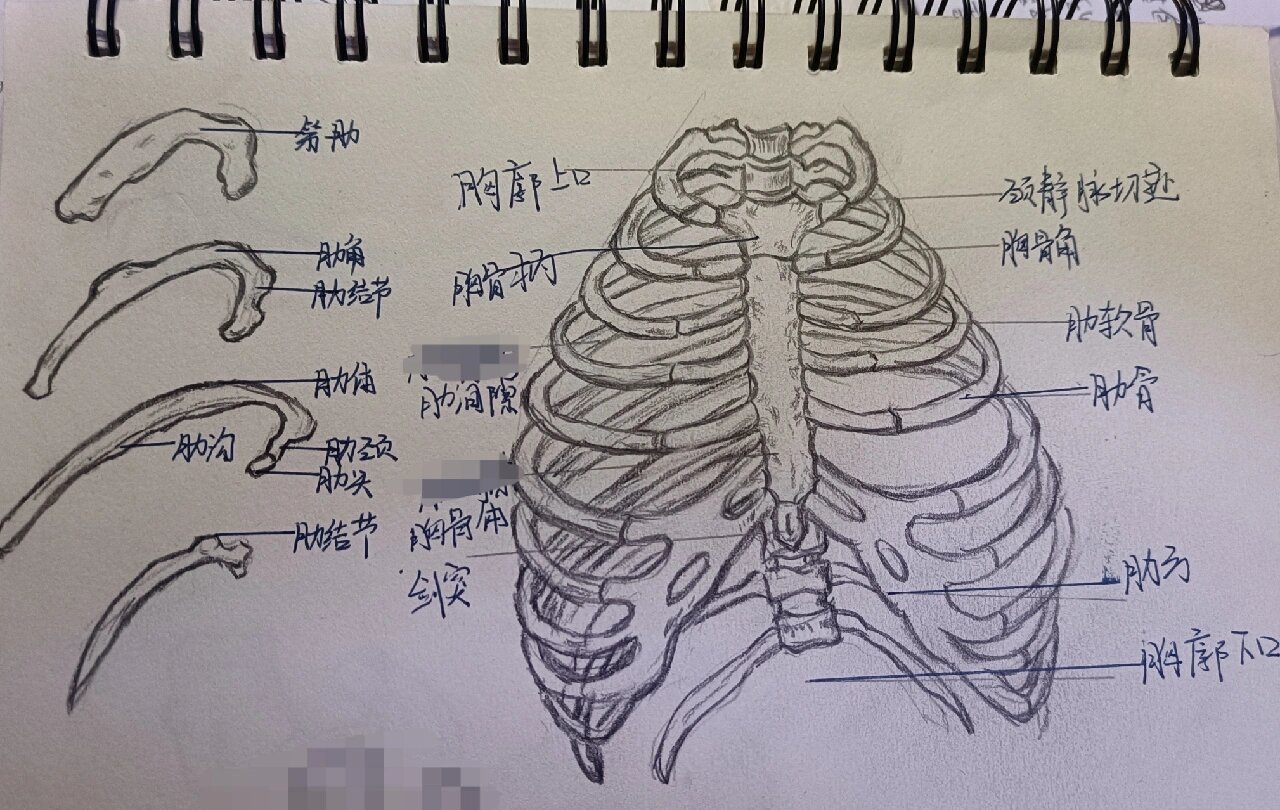 第肋
肋角
肋结节
肋体
肋沟
肋颈
肋头
肋结节
胸廓上口
胸骨柄
肋间隙
胸骨体
剑突
颈静脉切迹
胸骨角
肋软骨
肋骨
肋弓
胸廓下口